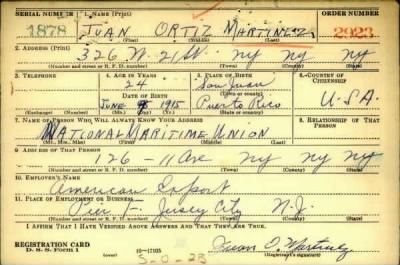 SERIAL NUMBER 1. NAME (Print) ORDER NUMBER
1878 JUAN ORTIZ MARTINEZ 2923
2. ADDRESS (Print)
326 W. 21 St. NY NY NY
(Number and street or R. F. D. number) (Town) (County) (State)
3. TELEPHONE 4. AGE IN YEARS 5. PLACE OF BIRTH 6. COUNTRY OF CITIZENSHIP
24 San Juan
DATE OF BIRTH (Town or county)
JUNE 1915 Puerto Rico U.S.A.
(Exchange) (Number) (Mo.) (Day) (Yr.) (State or country)
7. NAME OF PERSON WHO WILL ALWAYS KNOW YOUR ADDRESS 8. RELATIONSHIP OF THAT PERSON
NATIONAL MARITIME UNION
(Mr., Mrs., Miss) (First) (Middle) (Last)
9. ADDRESS OF THAT PERSON
126 - 11 Ave NY NY NY
(Number and street or R. F. D. number) (Town) (County) (State)
10. EMPLOYER'S NAME
American Export
11. PLACE OF EMPLOYMENT OR BUSINESS
Pier F - Jersey City N.J.
(Number and street or R. F. D. number) (Town) (County) (State)
I AFFIRM THAT I HAVE VERIFIED ABOVE ANSWERS AND THAT THEY ARE TRUE.
REGISTRATION CARD
D. S. S. Form 1 16-17105 Juan O. Martinez
(Registrant's signature)